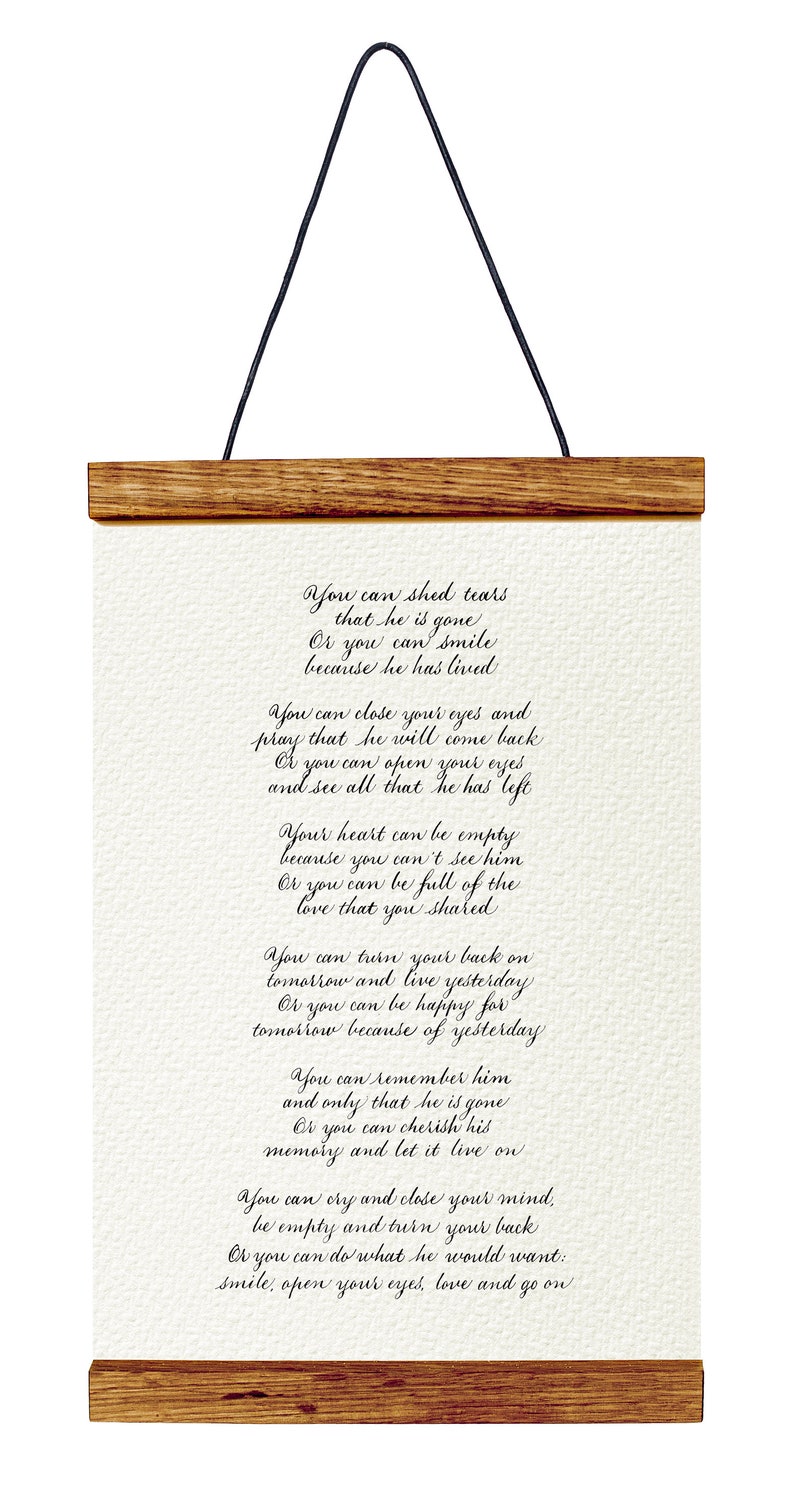 You can shed tears
that he is gone
Or you can smile
because he has lived
You can close your eyes and
pray that he will come back
Or you can open your eyes
and see all that he has left
Your heart can be empty
because you can't see him
Or you can be full of the
love that you shared
You can turn your back on
tomorrow and live yesterday
Or you can be happy for
tomorrow because of yesterday
You can remember him
and only that he is gone
Or you can cherish his
memory and let it live on
You can cry and close your mind,
be empty and turn your back
Or you can do what he would want:
smile, open your eyes, love and go on